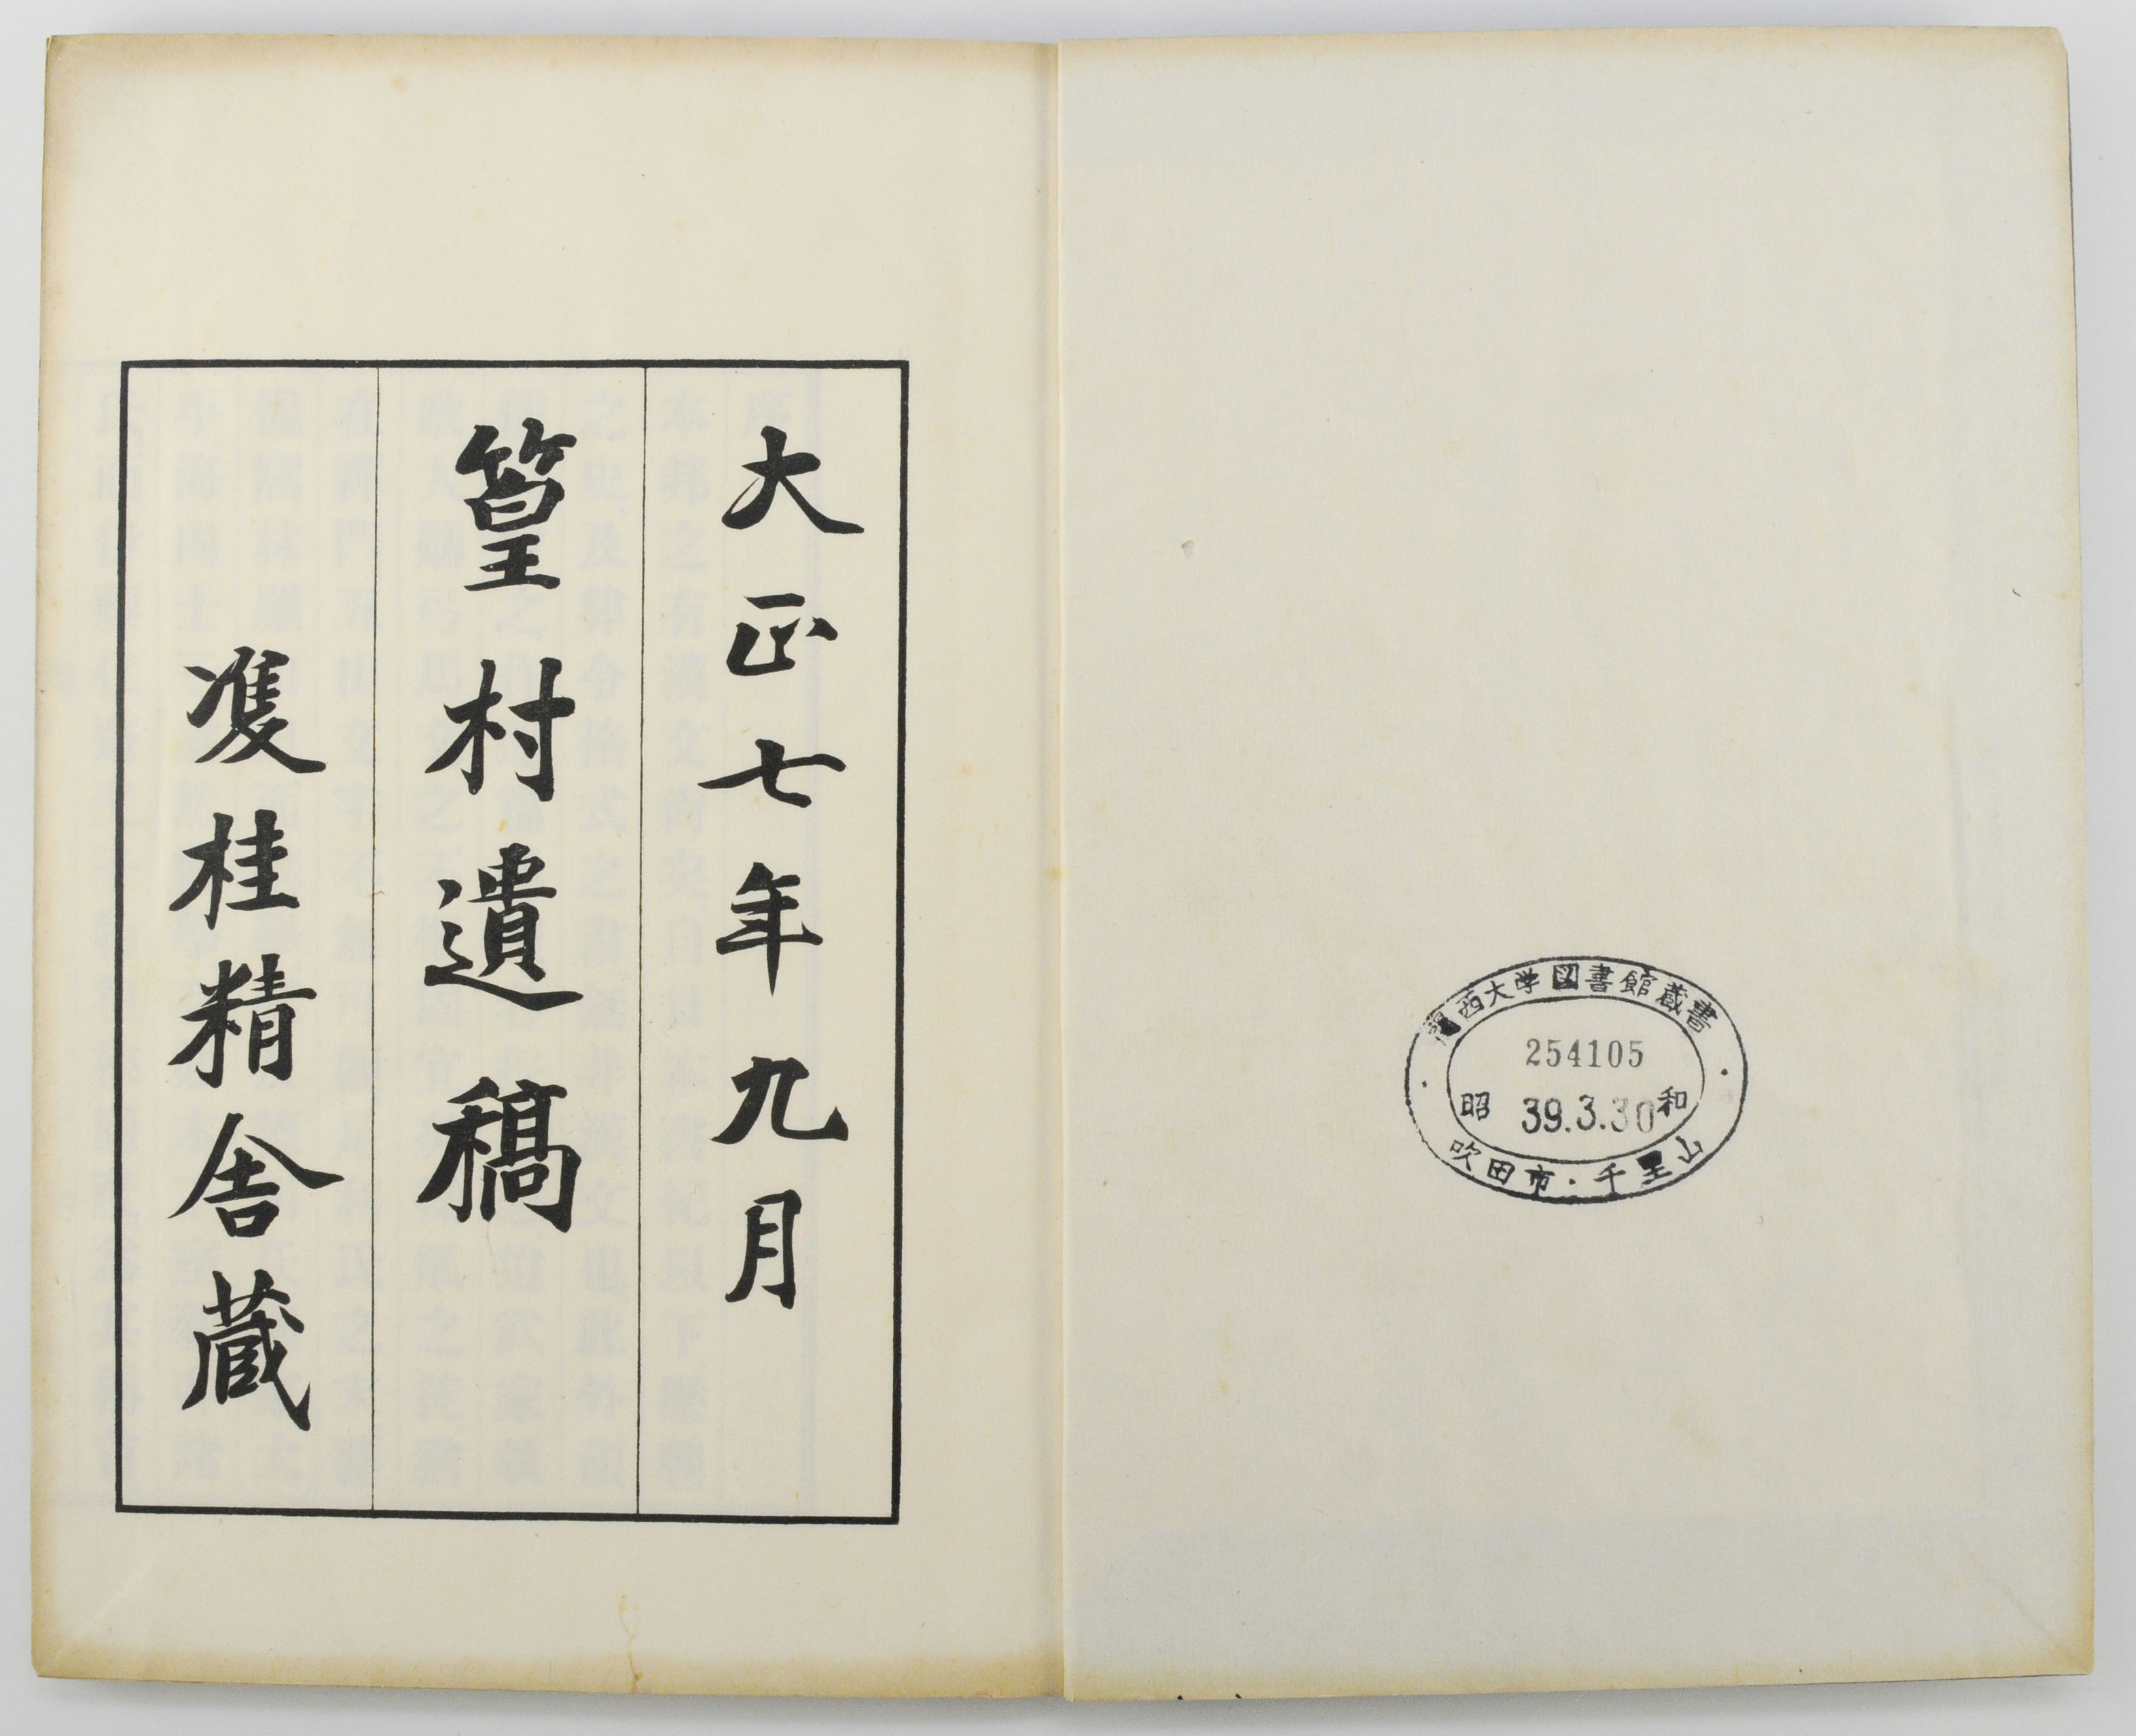 関西大学図書館蔵書
254105
昭和 39.3.30
吹田市・千里山
大正七年九月
篁村遺稿
雙桂精舎蔵